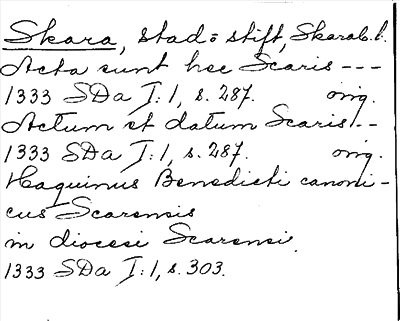 Skara, stad o stift, Skarab.l.
Acta sunt hec Scaris ---
1333 SDa I:1, s. 287. orig.
Actum et datum Scaris --
1333 SDa I:1, s. 287. orig.
Haquinus Benedicti canoni-
cus Scarensis
in diocesi Scarensi.
1333 SDa I:1, s. 303.